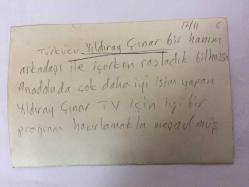 17/11 6
Türkücü Yıldıray Çınar bir hanım
arkadaşı ile içerken rastladık bilhassa
Anadoluda çok daha iyi isim yapan
Yıldıray Çınar TV için iyi bir
program hazırlamakla meşgulmüş